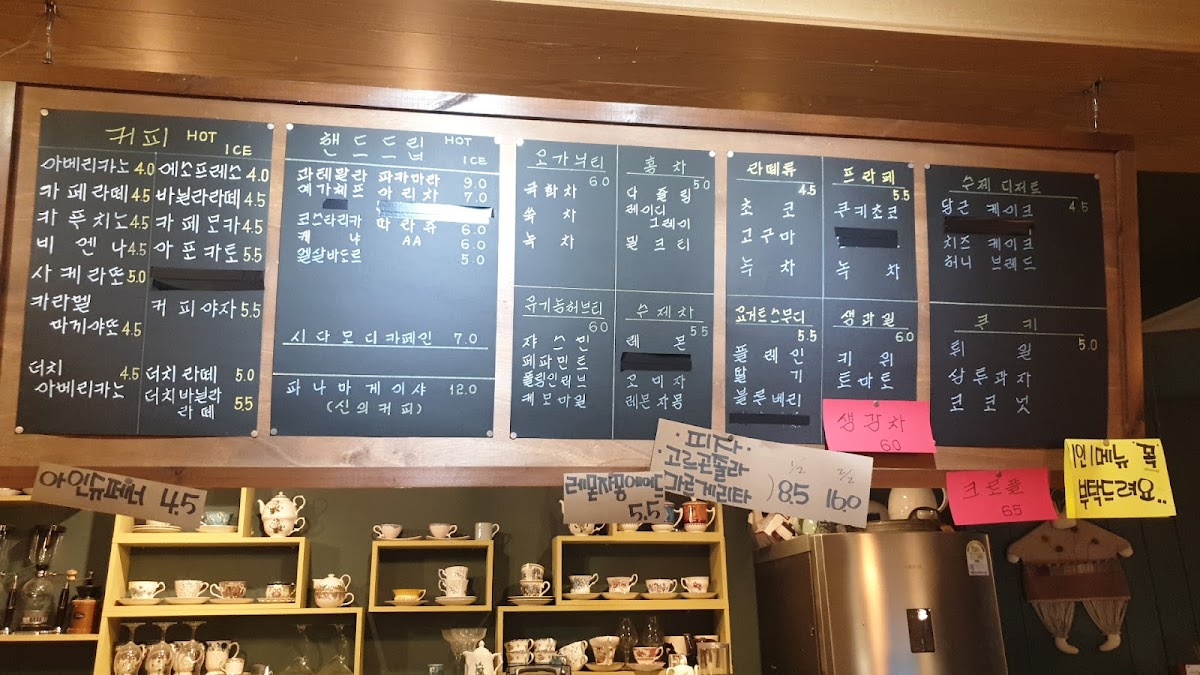 커피 HOT
ICE
아메리카노 4.0 에스프레소 4.0
카페라떼 4.5 바닐라라떼 4.5
카푹치노 4.5 카페모카 4.5
비엔나 4.5 아포카토 5.5
사케라또 5.0
카라멜
마끼야또 4.5
커피야자 5.5
더치
아메리카노 4.5
더치라떼 5.0
더치바닐라
라떼 5.5
핸드드립 HOT
ICE
과테말라 파카마라 9.0
예가체프 아리차 7.0
코스타리카 따라쥬 6.0
케냐 AA 6.0
엘살바도르 5.0
시다모디카페인 7.0
파나마게이샤 12.0
(신의커피)
오가닉티
6.0
국화차
쑥차
녹차
홍차
5.0
다즐링
레이디
그레이
밀크티
유기농허브티
6.0
쟈스민
페파민트
플링인러브
케모마일
수제차
5.5
레몬
오미자
레몬자몽
라떼류
4.5
초코
고구마
녹차
프라페
5.5
쿠키초코
녹차
요거트스무디
5.5
플레인
딸기
블루베리
생과일
6.0
키위
토마토
수제 디저트
당근 케이크 4.5
치즈 케이크
허니 브레드
쿠키
5.0
튀일
상투과자
코코넛
생강차
6.0
아인슈페너 4.5
레몬자몽에이드
5.5
·피다·
·고르곤졸라
·마르게리타
) 1/2 8.5 2/2 16.0
크로플
6.5
1인1메뉴 꼭
부탁드려요..